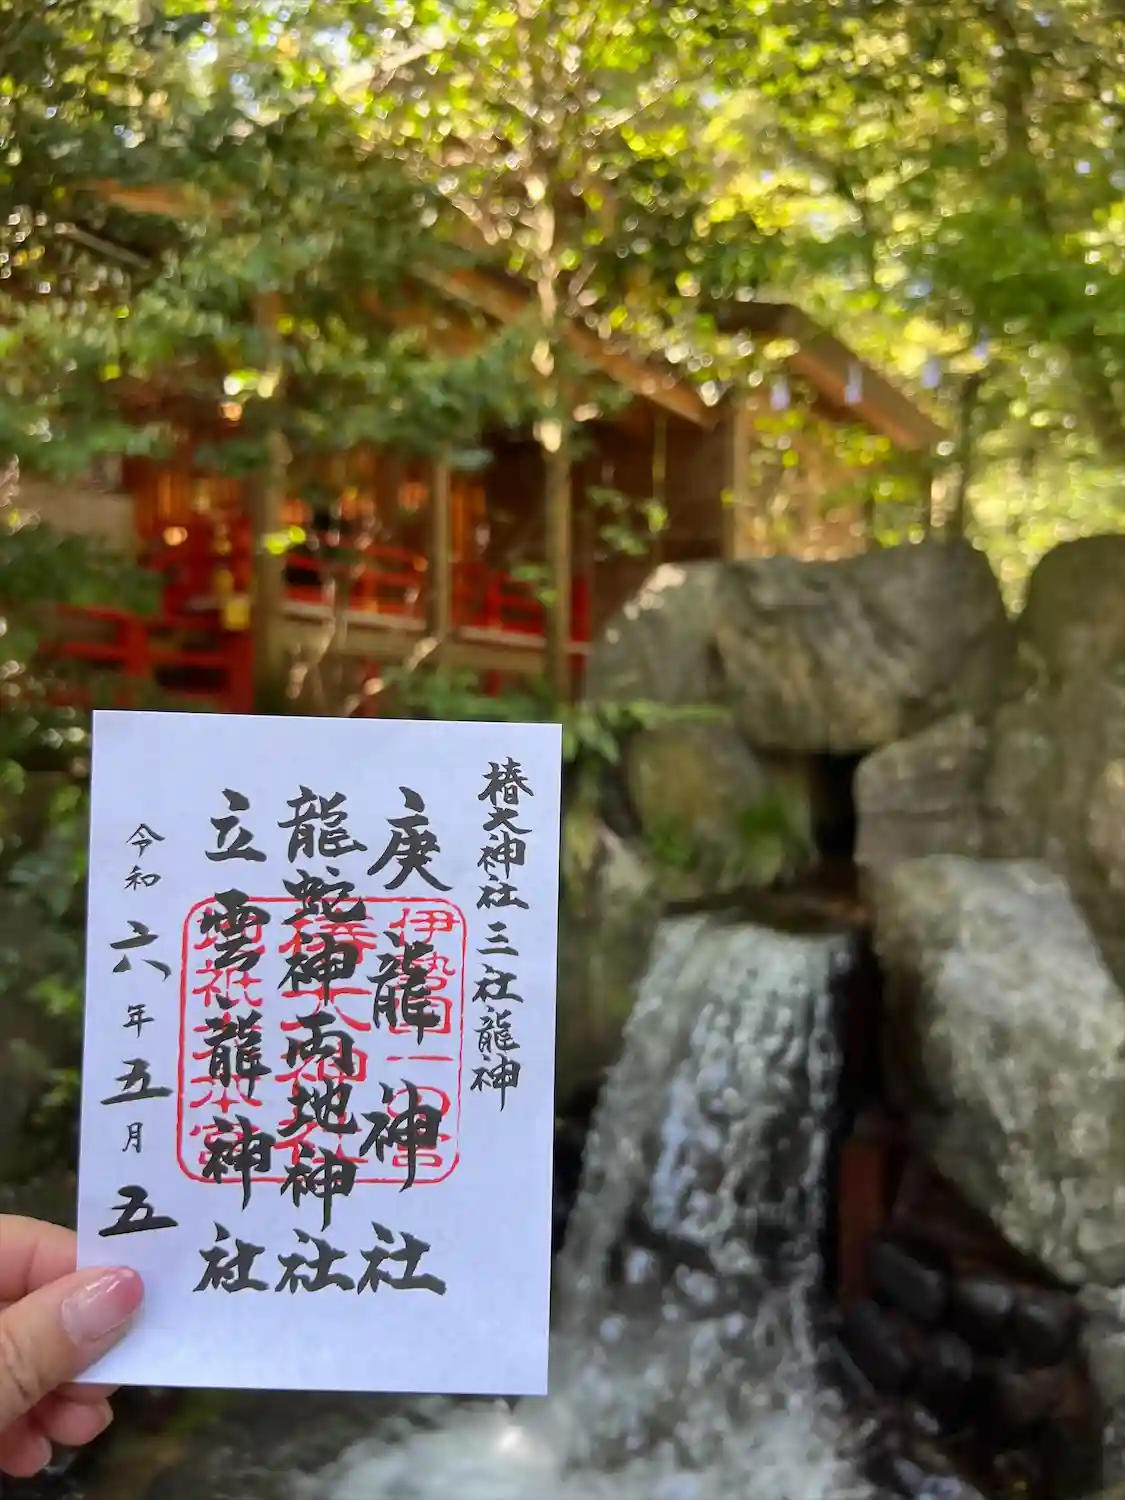 椿大神社三社龍神
庚龍神社
龍蛇神両地神社
立雲龍神社
令和六年五月五
伊勢国一の宮
椿大神社
地祇大本宮